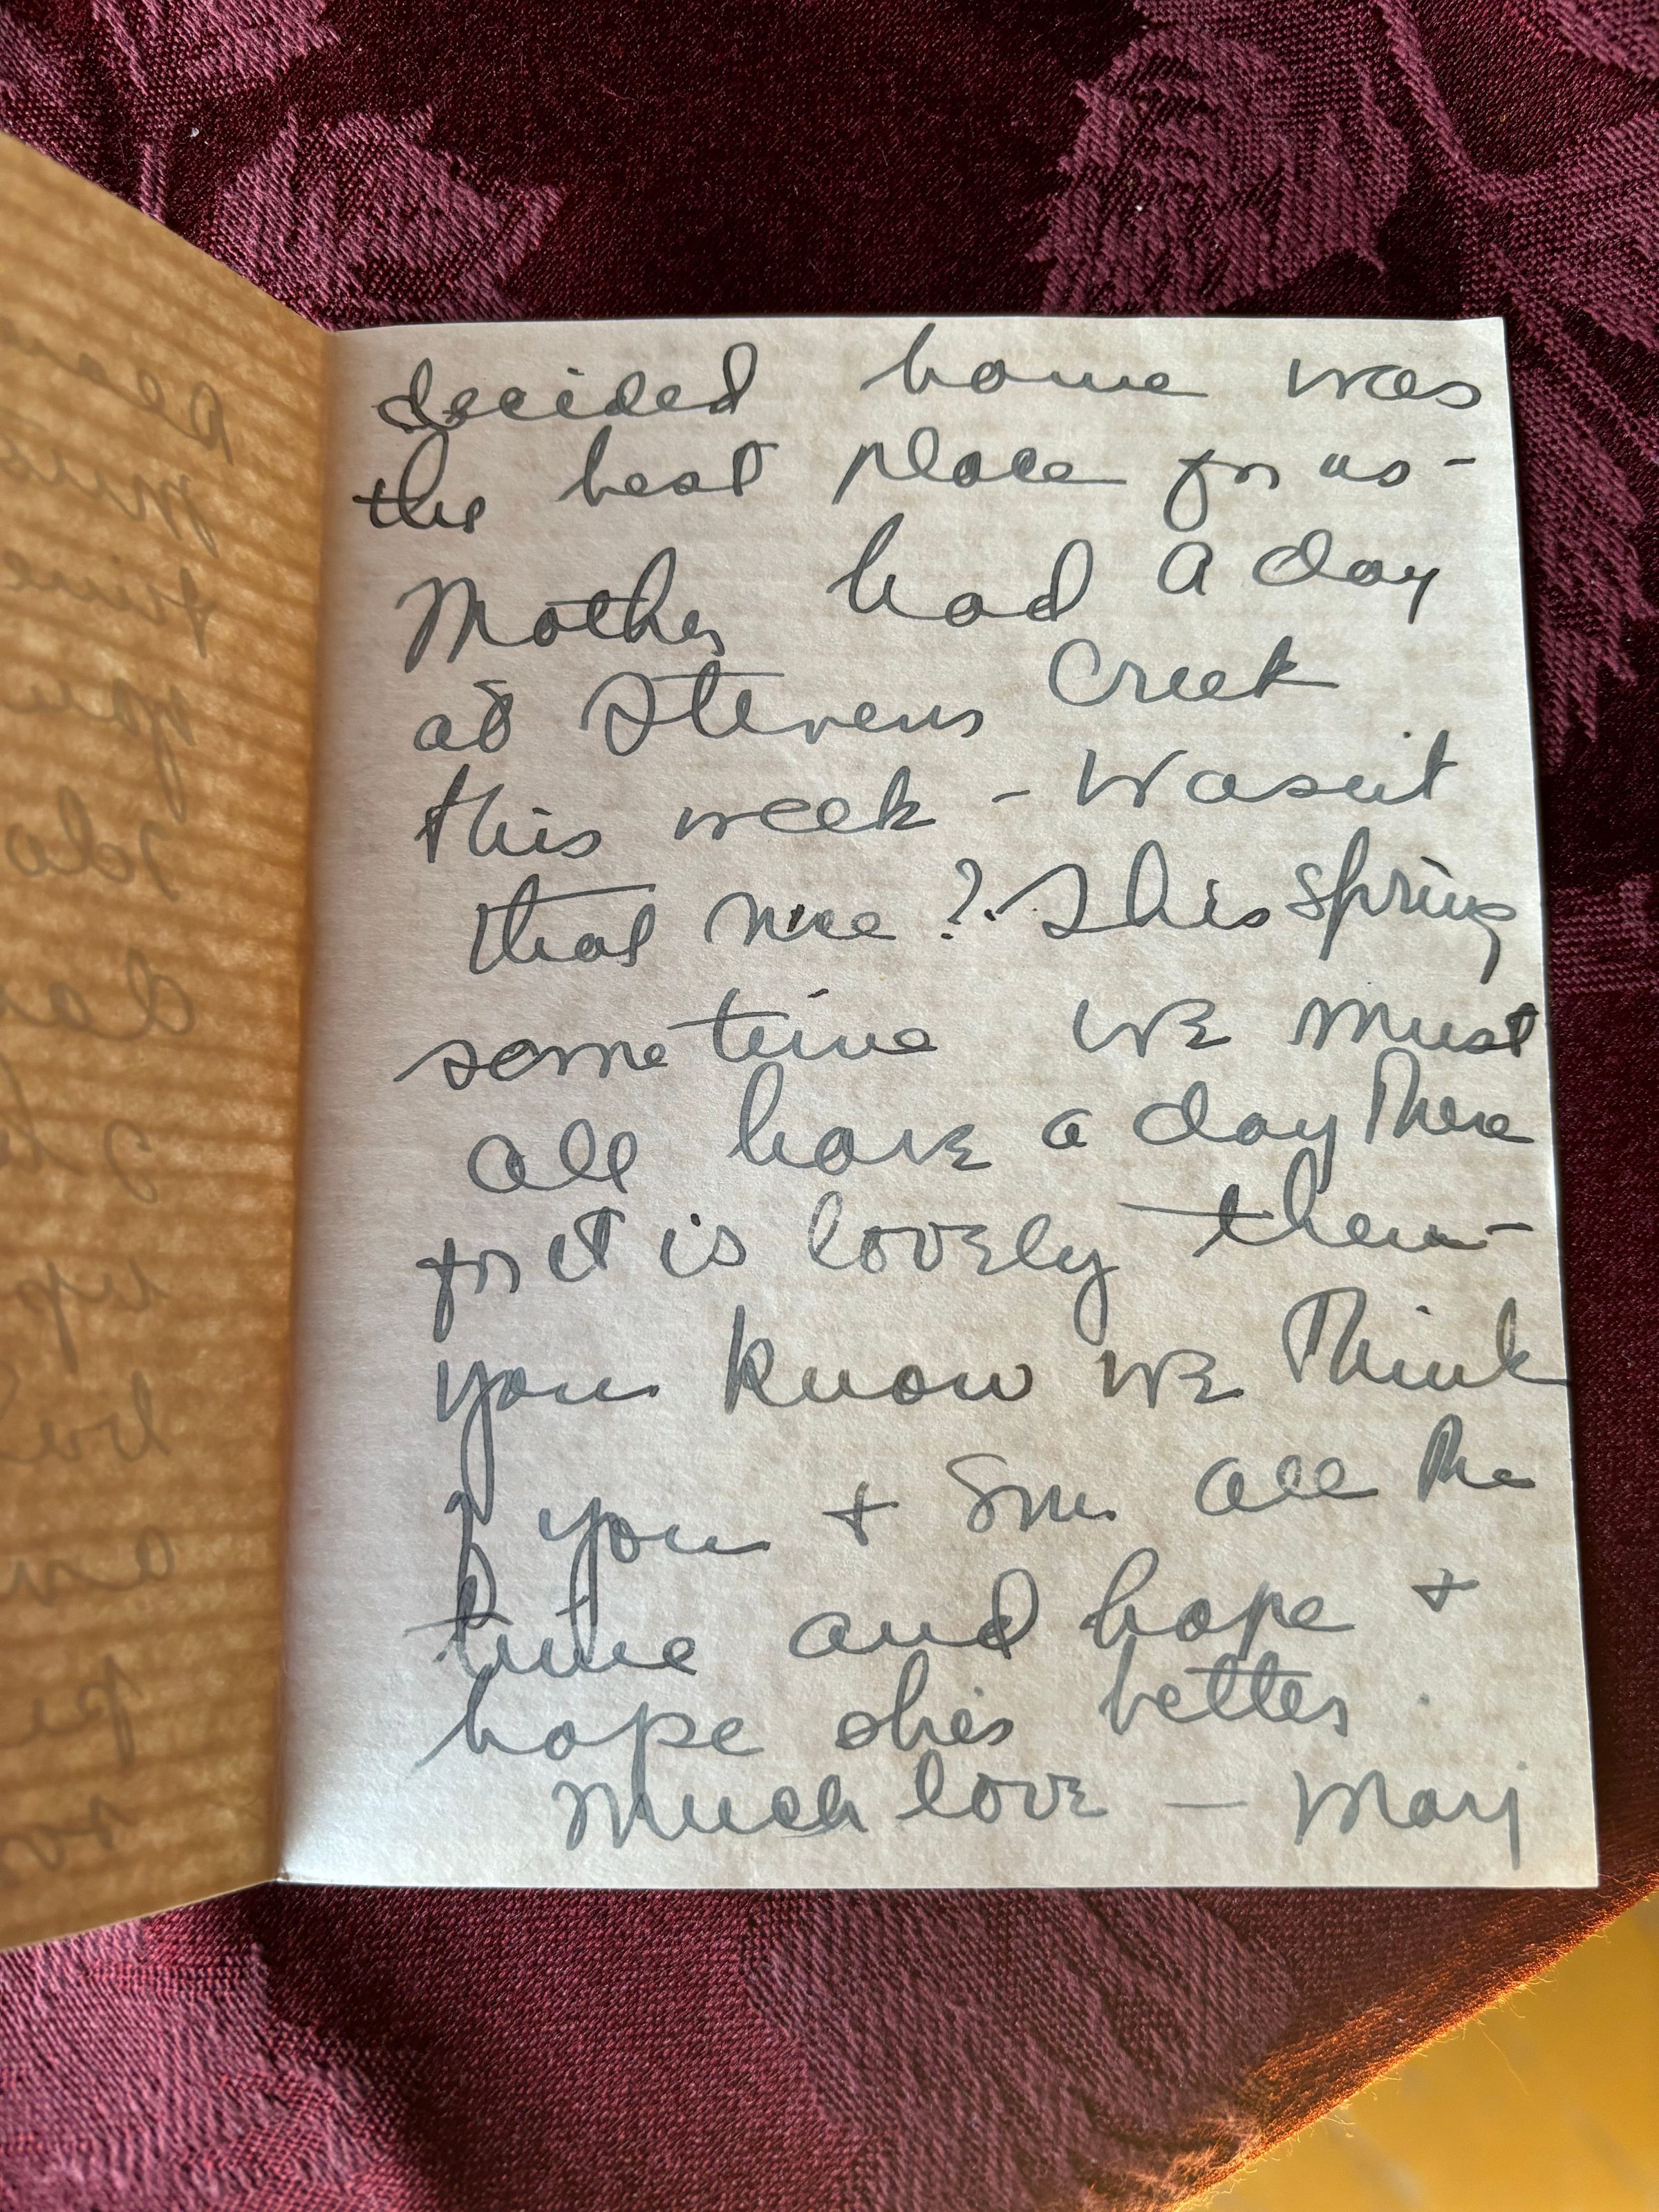 decided home was
the best place for us -
Mother had a day
at Stevens Creek
this week - Wasn't
that nice? This spring
sometime we must
all have a day there
for it is lovely then -
you know we think
of you + all the
time and hope +
hope she's better.
Much love - Marj